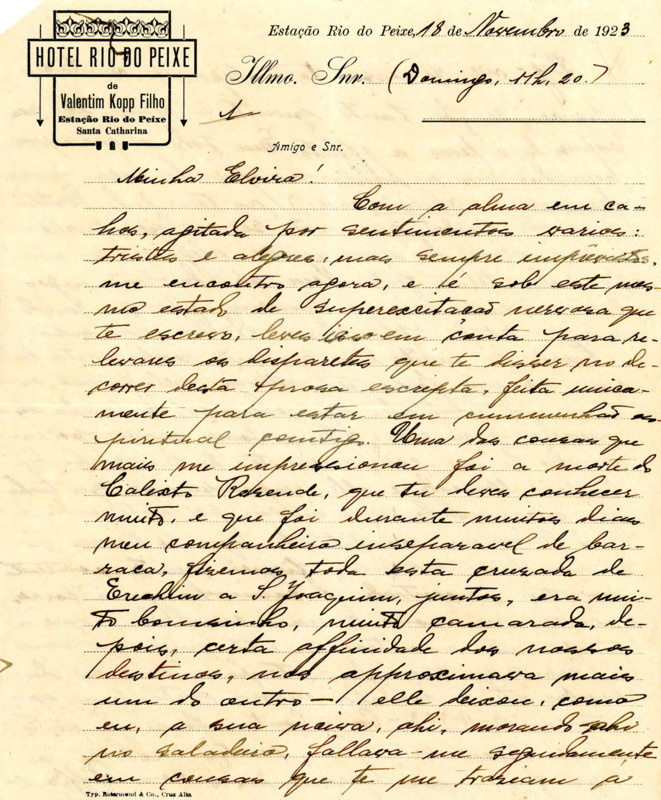 Estação Rio do Peixe, 18 de Novembro de 1923
HOTEL RIO DO PEIXE
de
Valentim Kopp Filho
Estação Rio do Peixe
Santa Catharina
Illmo. Snr. (Domingo, 11h, 20.)
Amigo e Snr.
Minha Elvira!
Com a alma em ca-
hos, agitada por sentimentos varios:
tristes e alegres, mas sempre imprevistos,
me encontro agora, e é sob este mes-
mo estado de superexcitação nervosa que
te escrevo, leves isso em conta para re-
levares os disparates que te disser no de-
correr desta prosa escripta, feita unica-
mente para estar em communhão es-
piritual comtigo. Uma das cousas que
mais me impressionou foi a morte do
Calixto Rezende, que tu deves conhecer
muito, e que foi durante muitos dias
meu companheiro inseparavel de bar-
raca, fizemos toda esta cruzada de
Erechim a S. Joaquim, juntos, era mui-
to bomsinho, muito camarada, de-
pois, certa affinidade dos nossos
destinos, nos approximava mais
um do outro — elle deixou, como
eu, a sua noiva, ahi, morando ahi
no saladeiro, fallava-me seguidamente
em cousas que te me traziam á
Typ. Rotermund & Co., Cruz Alta